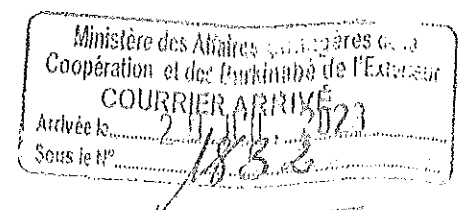 Ministère des Affaires
Coopération et des Burkinabè de l'Extérieur
COURRIER ARRIVÉ
Arrivée le 2 0 2023
Sous le N° 1832